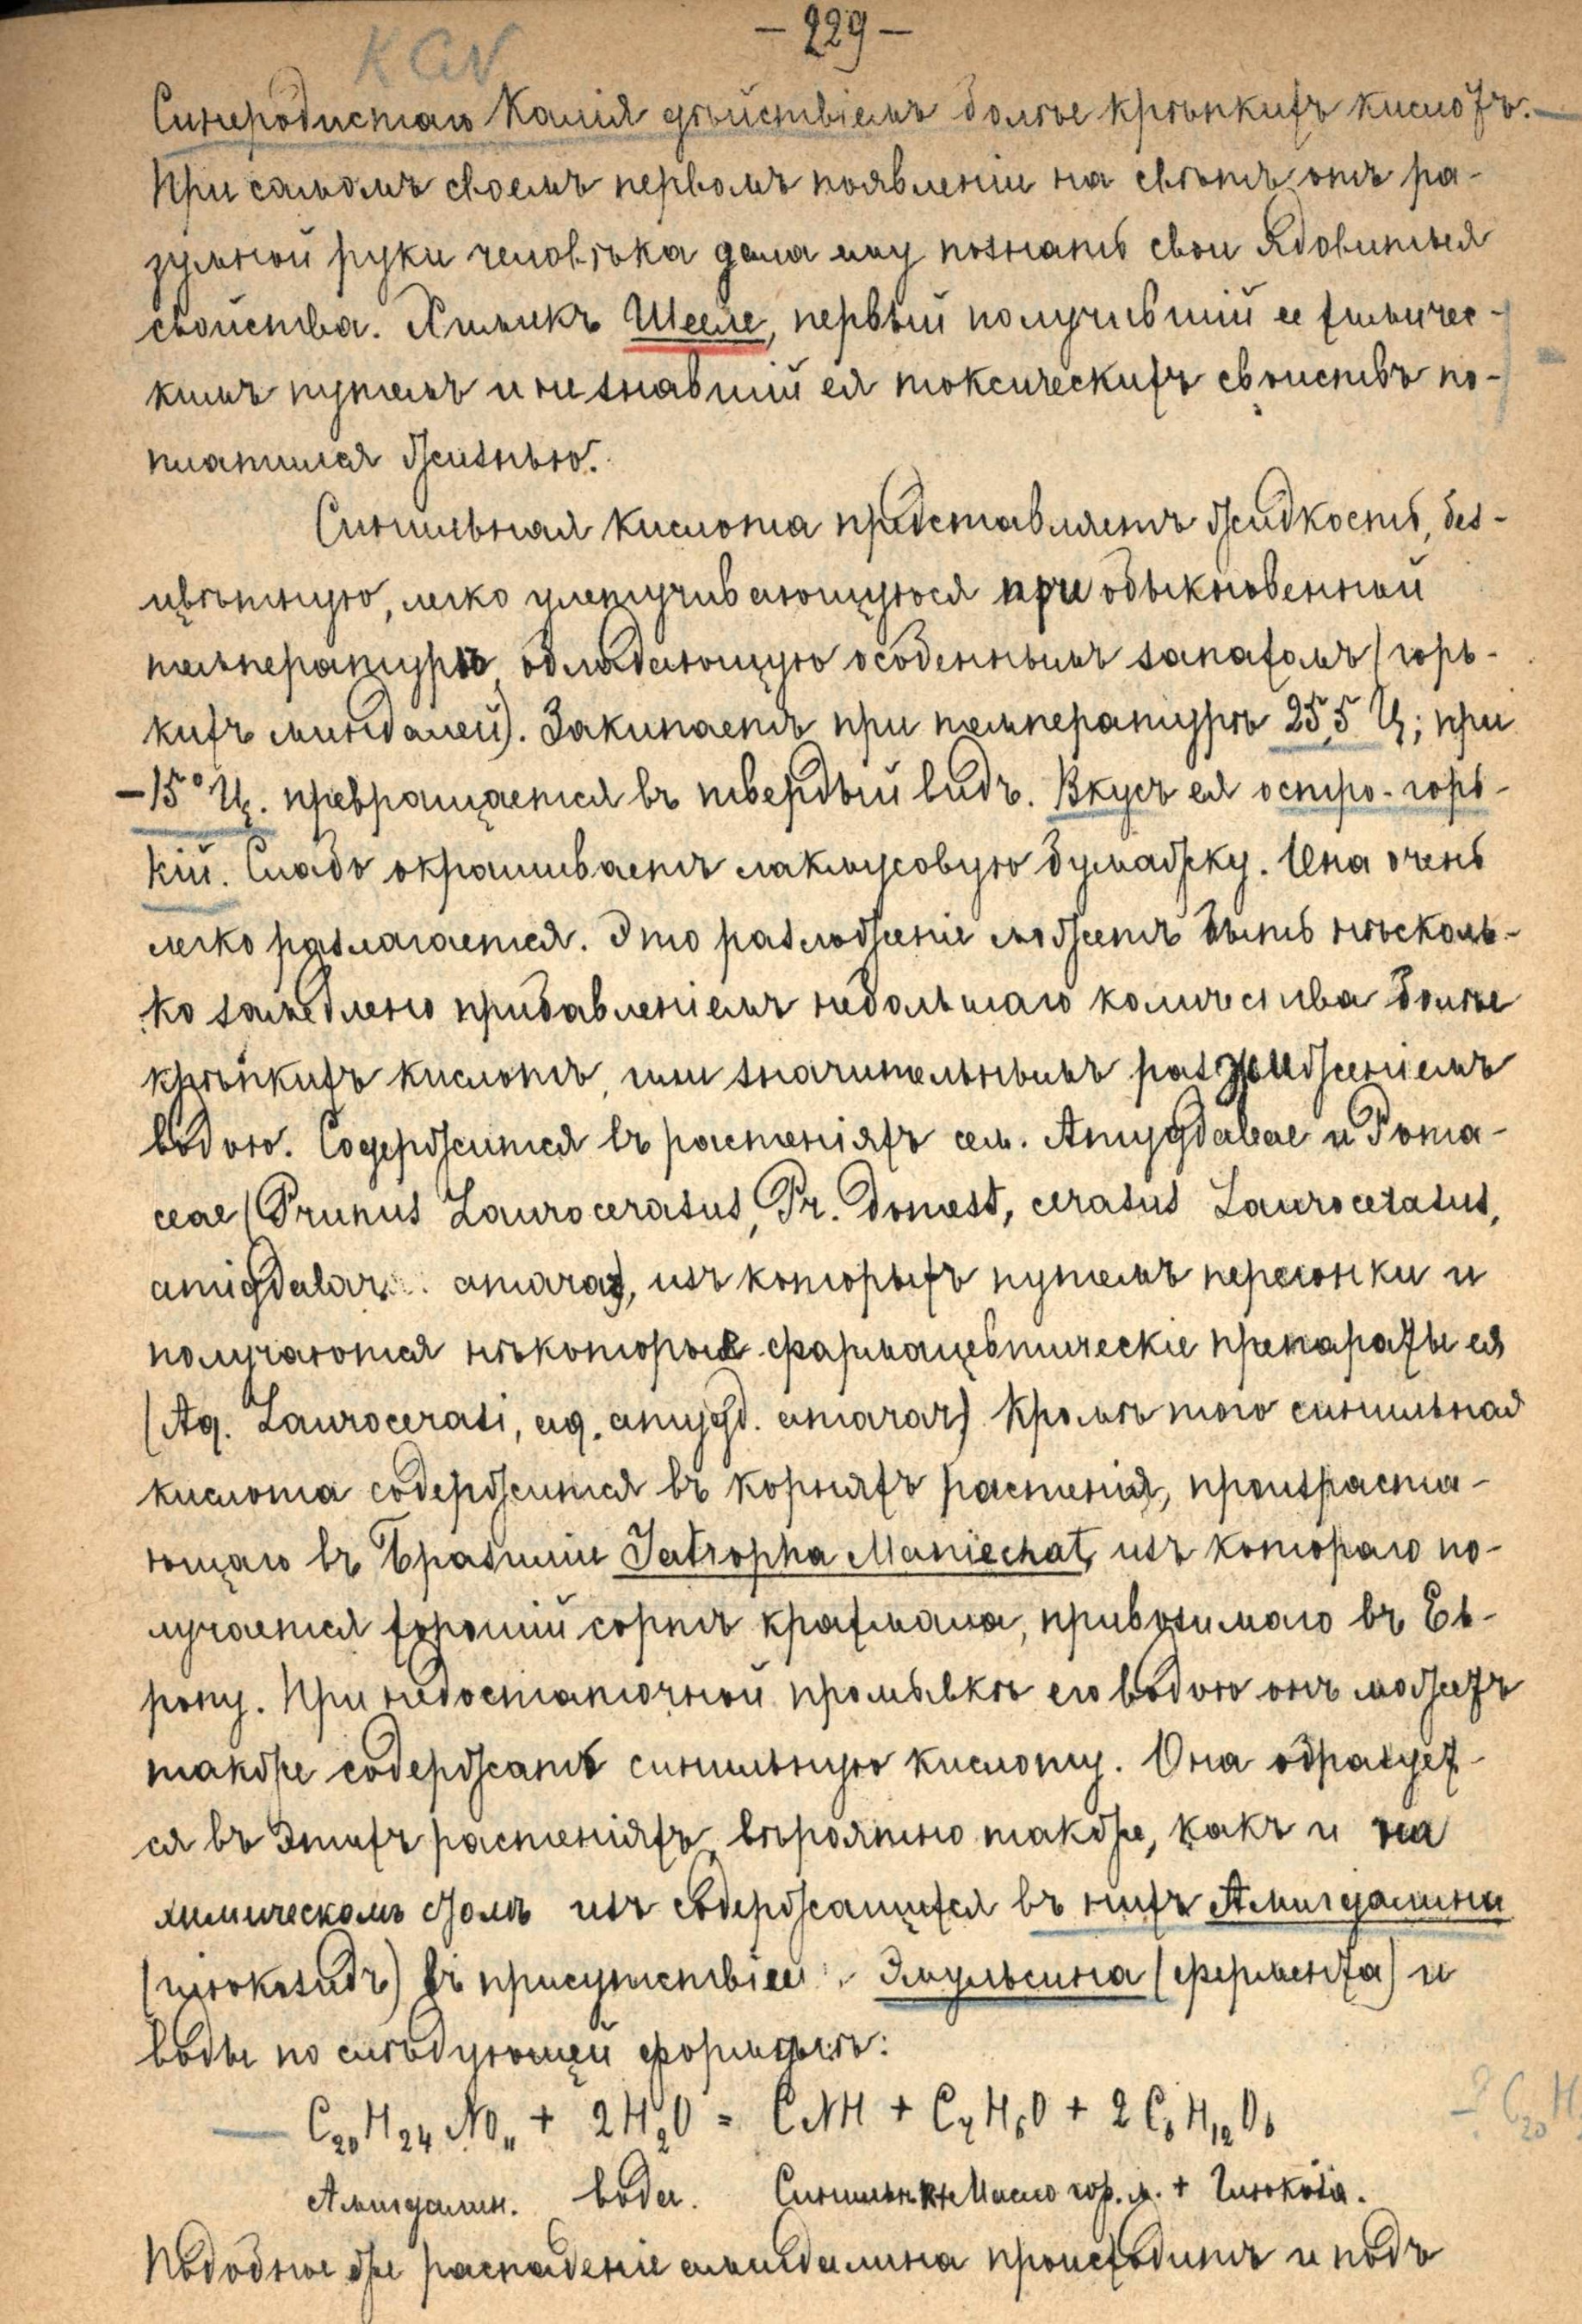 – 229 –
KCN
Синеродистаго Калія дѣйствіемъ болѣе крѣпкихъ кислотъ. –
При самомъ своемъ первомъ появленіи на свѣтъ отъ ра-
зумной руки человѣка дала ему познать свои ядовитыя
свойства. Химикъ Шееле, первый получившій ее химичес-
кимъ путемъ и не знавшій ея токсическихъ свойствъ по-
платился жизнью.
Синильная кислота представляетъ жидкость, без-
цвѣтную, легко улетучивающуюся при обыкновенной
температурѣ, обладающую особеннымъ запахомъ (горь-
кихъ миндалей). Закипаетъ при температурѣ 25,5 Ц; при
–15° Ц. превращается въ твердый видъ. Вкусъ ея остро-горь-
кій. Слабо окрашиваетъ лакмусовую бумажку. Она очень
легко разлагается. Это разложеніе можетъ быть нѣсколь-
ко замедлено прибавленіемъ небольшаго количества болѣе
крѣпкихъ кислотъ, или значительнымъ разжиженіемъ
водою. Содержится въ растеніяхъ сем. Amygdaleae и Poma-
ceae (Prunus Laurocerasus, Pr. Domest, cerasus Laurocerasus,
amigdalar. amarar), изъ которыхъ путемъ перегонки и
получаются нѣкоторые фармацевтическіе препараты ея
(Aq. Laurocerasi, aq. amygd. amarar) Кромѣ того синильная
кислота содержится въ корняхъ растенія, произраста-
ющаго въ Бразиліи Jatropha Maniechat, изъ котораго по-
лучается хорошій сортъ крахмала, привозимаго въ Ев-
ропу. При недостаточной промывкѣ его водою онъ можетъ
также содержать синильную кислоту. Она образует-
ся въ этихъ растеніяхъ, вѣроятно также, какъ и на
химическомъ столѣ изъ содержащихся въ нихъ Амигдалина
(глюкозидъ) въ присутствіи Эмульсина (фермента) и
воды по слѣдующей формулѣ:
– C20H24NO11 + 2H2O = CNH + C7H6O + 2C6H12O6
– ? C20H
Амигдалин. вода. Синильн к-та Масло гор. м. + Глюкоза.
Подобное же распаденіе амигдалина происходитъ и подъ